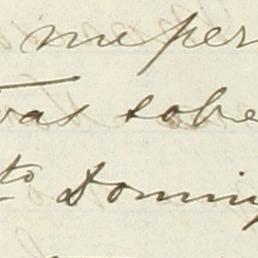 me per
vas sobre
to Doming